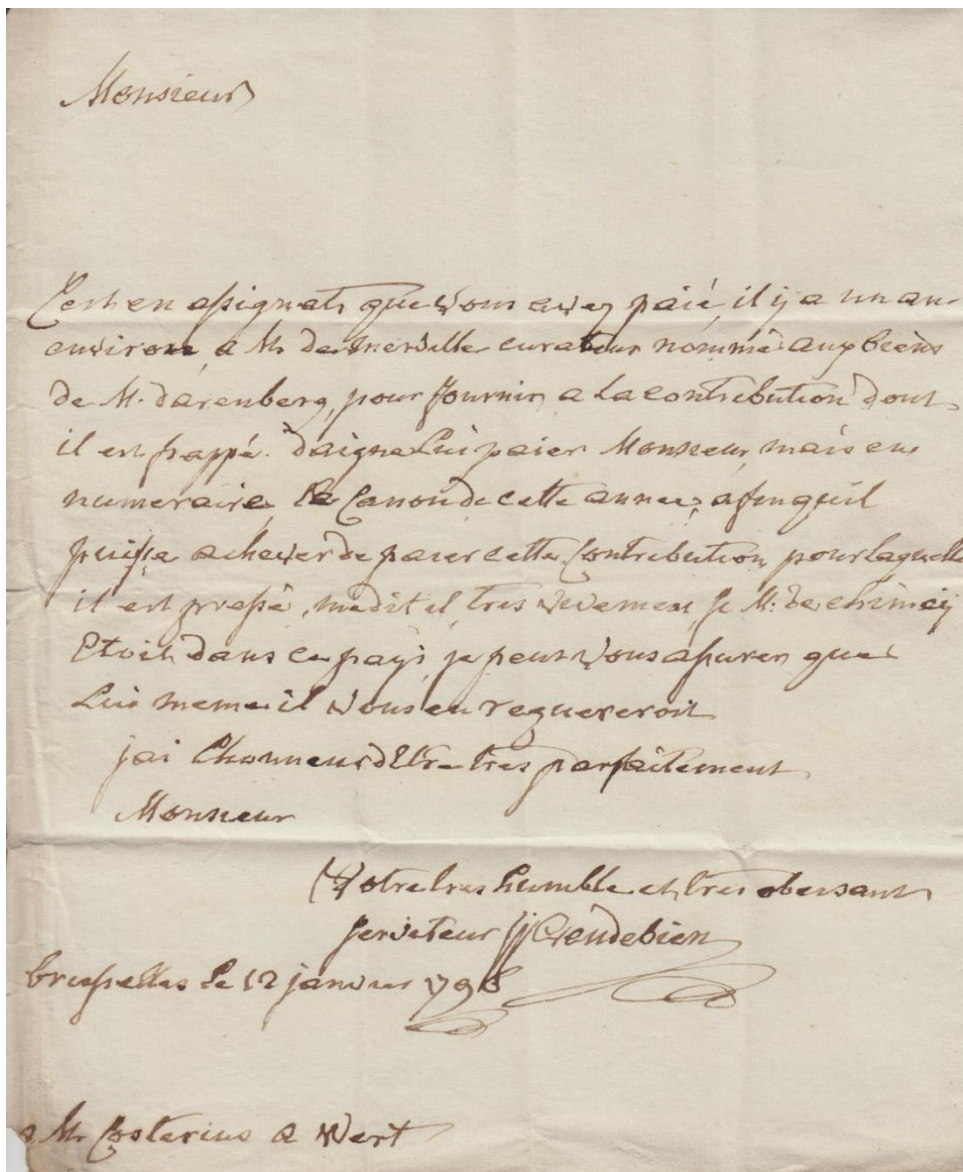 Monsieur
C'est en assignats que vous avez paié, il ij a un an
environ a M. de merville curateur nommé aux biens
de M. d'arenberg, pour fournir a la contribution dont
il est frappé. daigne lui paier Monsieur, mais en
numeraire, le Canon de cette année, afin qu'il
puisse achever de paier cette Contribution pour laquelle
il est pressé, me dit il, tres vivement, se M. de chimaij
Etoit dans ce pays, je peut vous assurer que
Lui meme il vous en requereroit
jai L'honneur d'Etre tres parfaitement
Monsieur
Votre tres humble et tres obeissant
serviteur Gendebien
bruxelles Le 12 janvier 1796
a M. Costerius a Wert